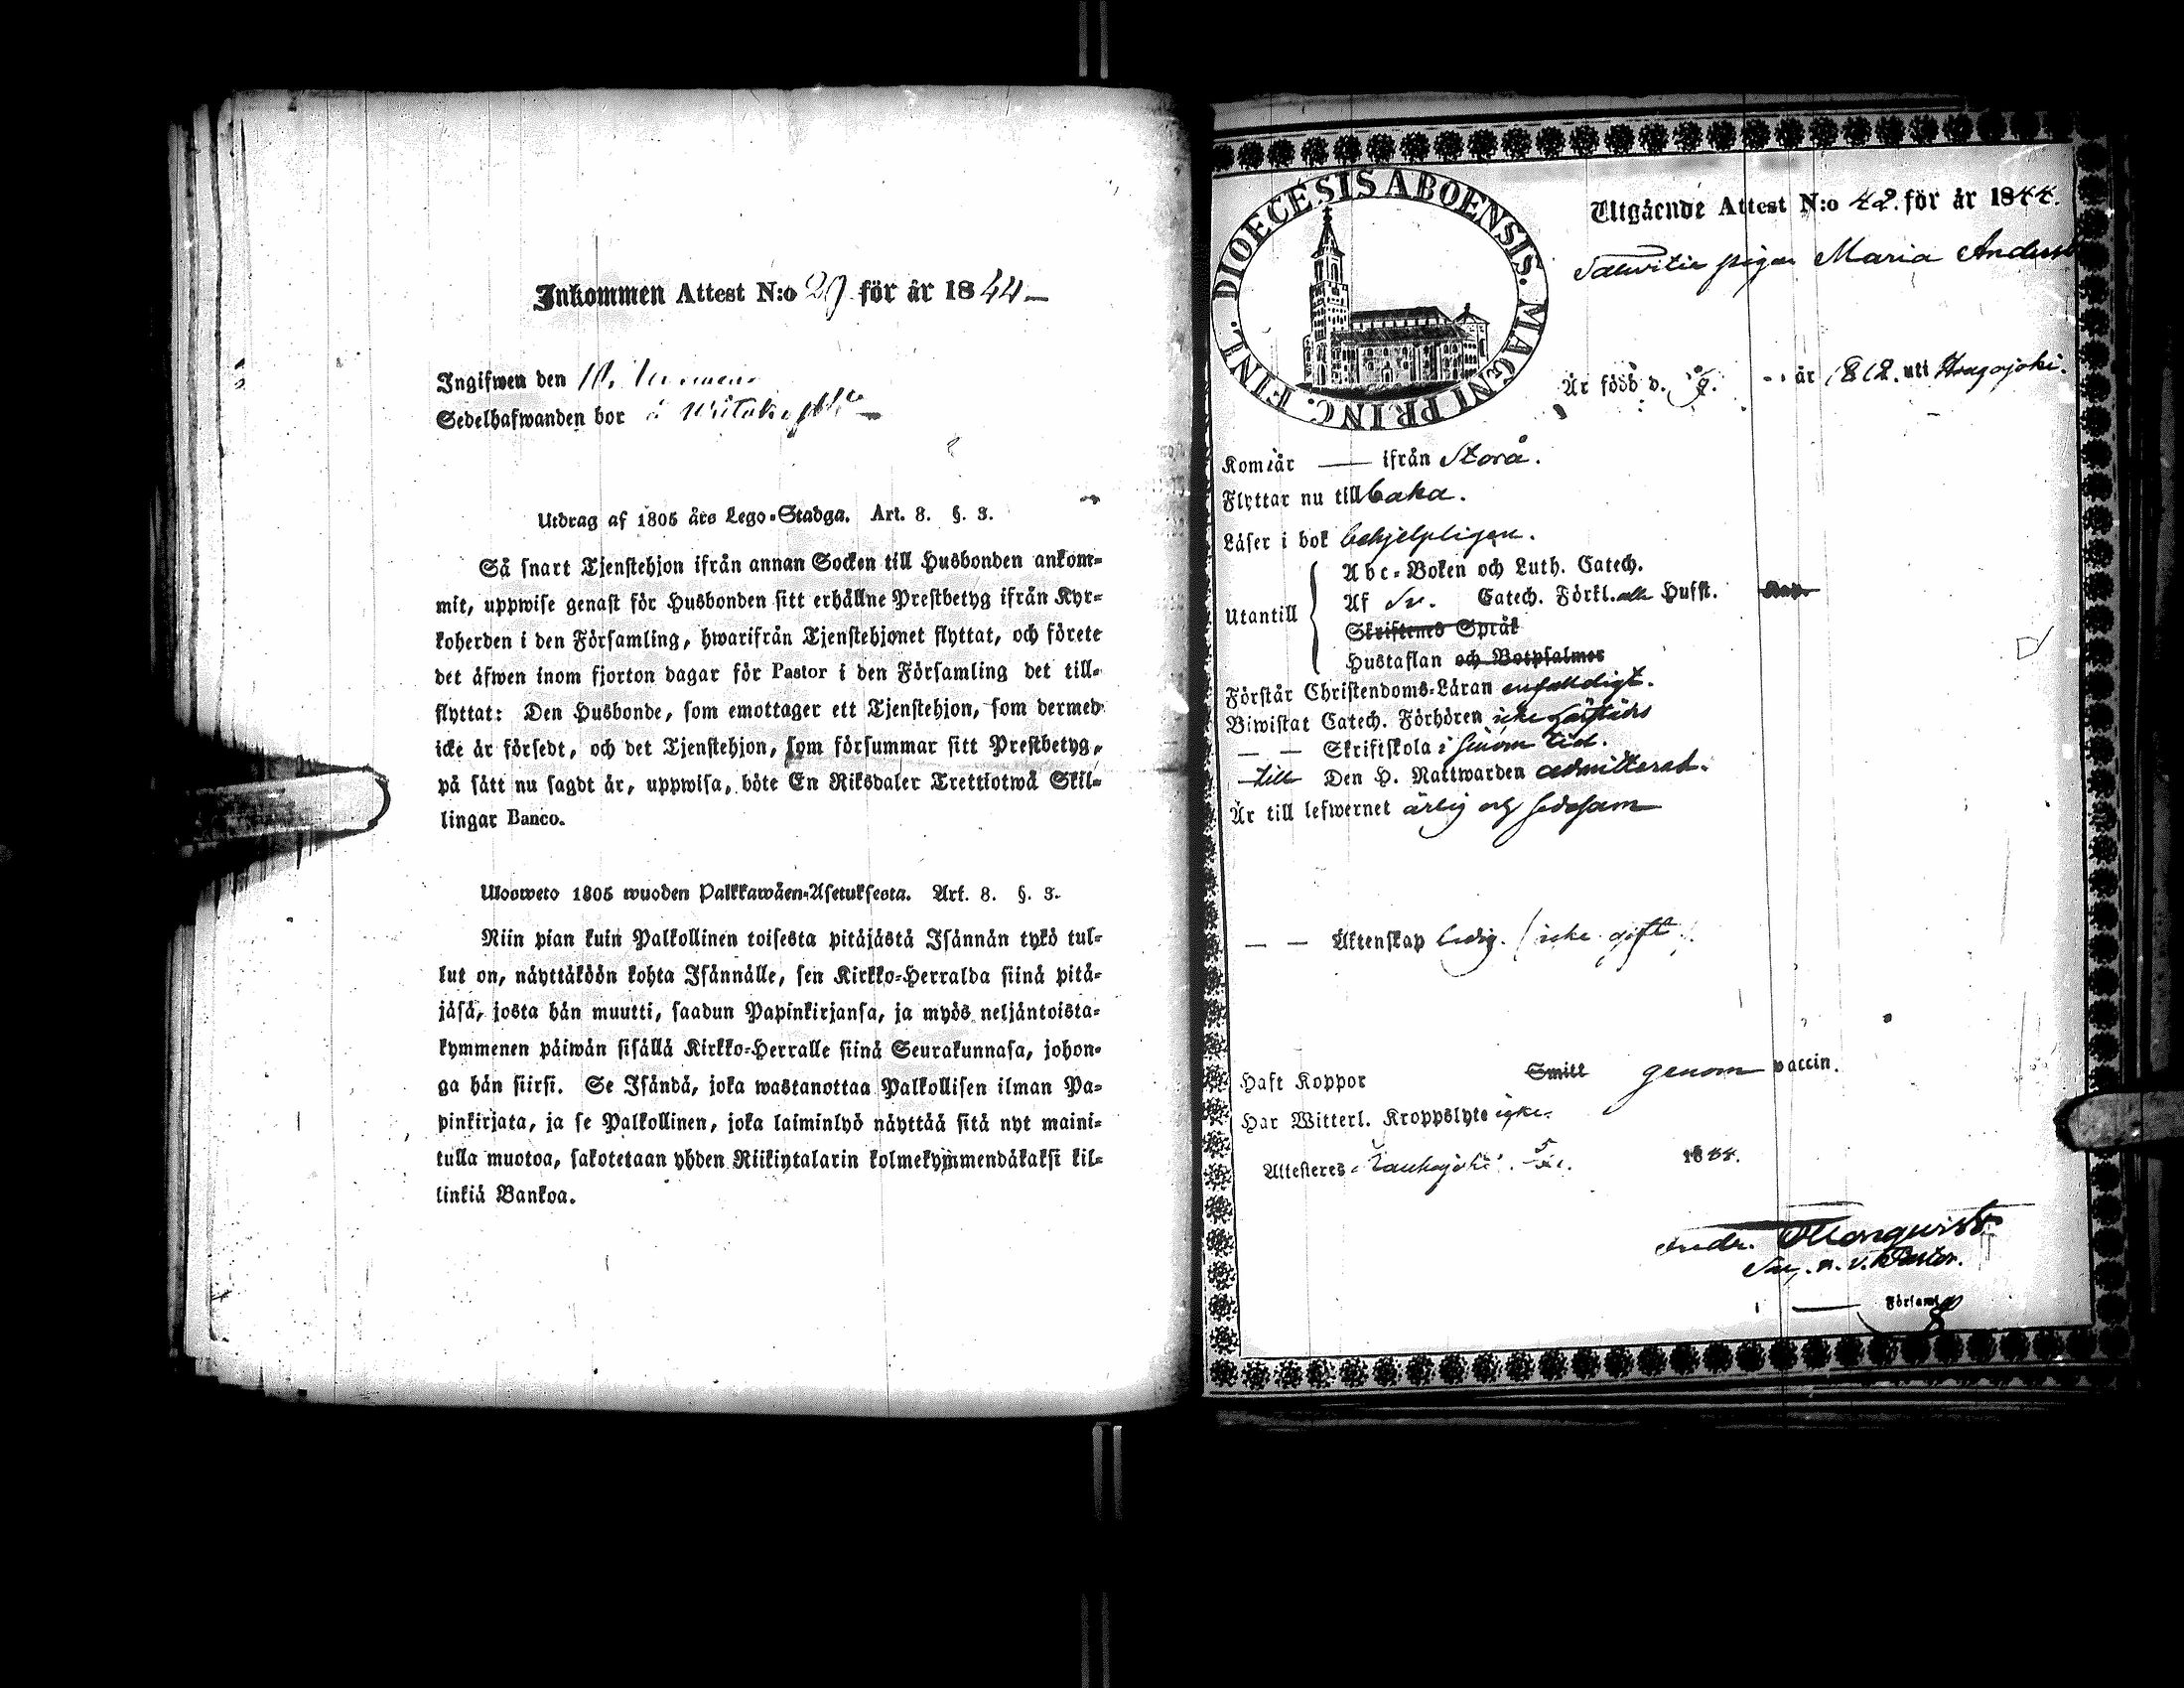 Inkommen Attest N:o 29 för år 1844
Ingifwen den
Sedelhafwanden bor å
Utdrag af 1805 års Lego-Stadga. Art. 8. §. 3.
Så snart Tjenstehjon ifrån annan Socken till Husbonden ankom-
mit, uppwise genast för Husbonden sitt erhållne Prestbetyg ifrån Kyr-
koherden i den Församling, hwarifrån Tjenstehjonet flyttat, och förete
det äfwen inom fjorton dagar för Pastor i den Församling det till-
flyttat: Den Husbonde, som emottager ett Tjenstehjon, som dermed
icke är försedt, och det Tjenstehjon, som försummar sitt Prestbetyg,
på sätt nu sagdt är, uppwisa, böte En Riksdaler Trettiotwå Skil-
lingar Banco.
Ulosweto 1805 wuoden Palkkawäen-Asetuksesta. Art. 8. §. 3.
Niin pian kuin Palkollinen toisesta pitäjästä Isännän tykö tul-
lut on, näyttäköön kohta Isännälle, sen Kirkko-Herralda siinä pitä-
jäsä, josta hän muutti, saadun Papinkirjansa, ja myös neljäntoista-
kymmenen päiwän sisällä Kirkko-Herralle siinä Seurakunnasa, johon-
ga hän siirsi. Se Isändä, joka wastanottaa Palkollisen ilman Pa-
pinkirjata, ja se Palkollinen, joka laiminlyö näyttää sitä nyt maini-
tulla muotoa, sakotetaan yhden Riikintalarin kolmekymmendäkaksi kil-
linkiä Bankoa.
DIOECESIS ABOENSIS. MAGNI PRINC. FINL.
Utgående Attest N:o 42. för år 1844.
pigan Maria
Är född d. år 1812. uti
Kom år — ifrån Storå.
Flyttar nu tillbaka.
Läser i bok behjelpligen.
Abc-Boken och Luth. Catech.
Utantill Af Sv. Catech. Förkl. alla Husst.
Skriftenes Språk
Hustaflan och Botpsalmer
Förstår Christendoms-Läran enfaldigt.
Biwistat Catech. Förhören icke härstädes
— — Skriftskola i sinom tid.
till Den H. Nattwarden admitterad.
Är till lefwernet ärlig och sedesam
— — Äktenskap ledig. (icke gift).
Haft Koppor Smitt genom vaccin.
Har Witterl. Kroppslyte icke.
Attesteres Kauhajoki 1844.
Andr.
v. Pastor.
i — Församl